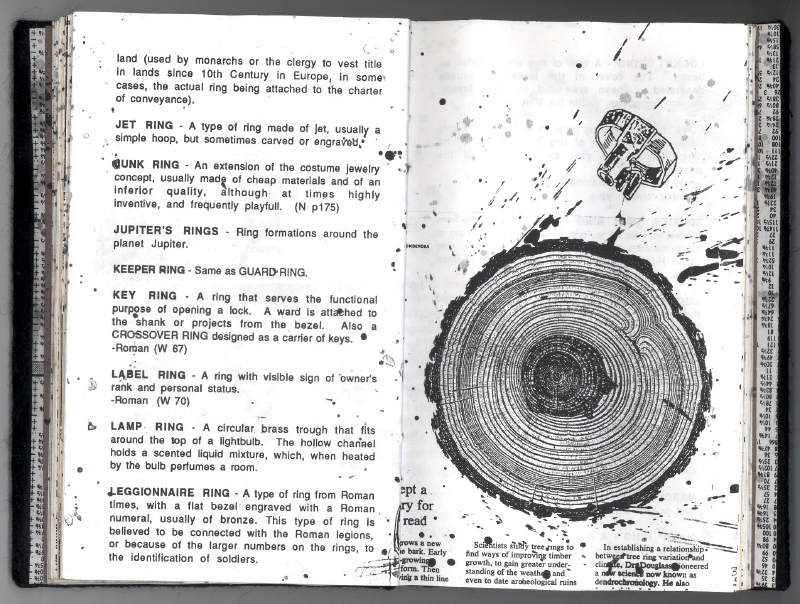 land (used by monarchs or the clergy to vest title
in lands since 10th Century in Europe, in some
cases, the actual ring being attached to the charter
of conveyance).
JET RING - A type of ring made of jet, usually a
simple hoop, but sometimes carved or engraved.
JUNK RING - An extension of the costume jewelry
concept, usually made of cheap materials and of an
inferior quality, although at times highly
inventive, and frequently playfull. (N p175)
JUPITER'S RINGS - Ring formations around the
planet Jupiter.
KEEPER RING - Same as GUARD RING.
KEY RING - A ring that serves the functional
purpose of opening a lock. A ward is attached to
the shank or projects from the bezel. Also a
CROSSOVER RING designed as a carrier of keys.
-Roman (W 67)
LABEL RING - A ring with visible sign of owner's
rank and personal status.
-Roman (W 70)
LAMP RING - A circular brass trough that fits
around the top of a lightbulb. The hollow channel
holds a scented liquid mixture, which, when heated
by the bulb perfumes a room.
LEGGIONNAIRE RING - A type of ring from Roman
times, with a flat bezel engraved with a Roman
numeral, usually of bronze. This type of ring is
believed to be connected with the Roman legions,
or because of the larger numbers on the rings, to
the identification of soldiers.
ept a
ry for
read
grows a new
bark. Early
growing
form. Then
ving a thin line
Scientists study tree rings to
find ways of improving timber
growth, to gain greater under-
standing of the weather and
even to date archeological ruins
In establishing a relationship
between tree ring variation and
climate, Dr. Douglass pioneered
a new science now known as
dendrochronology. He also